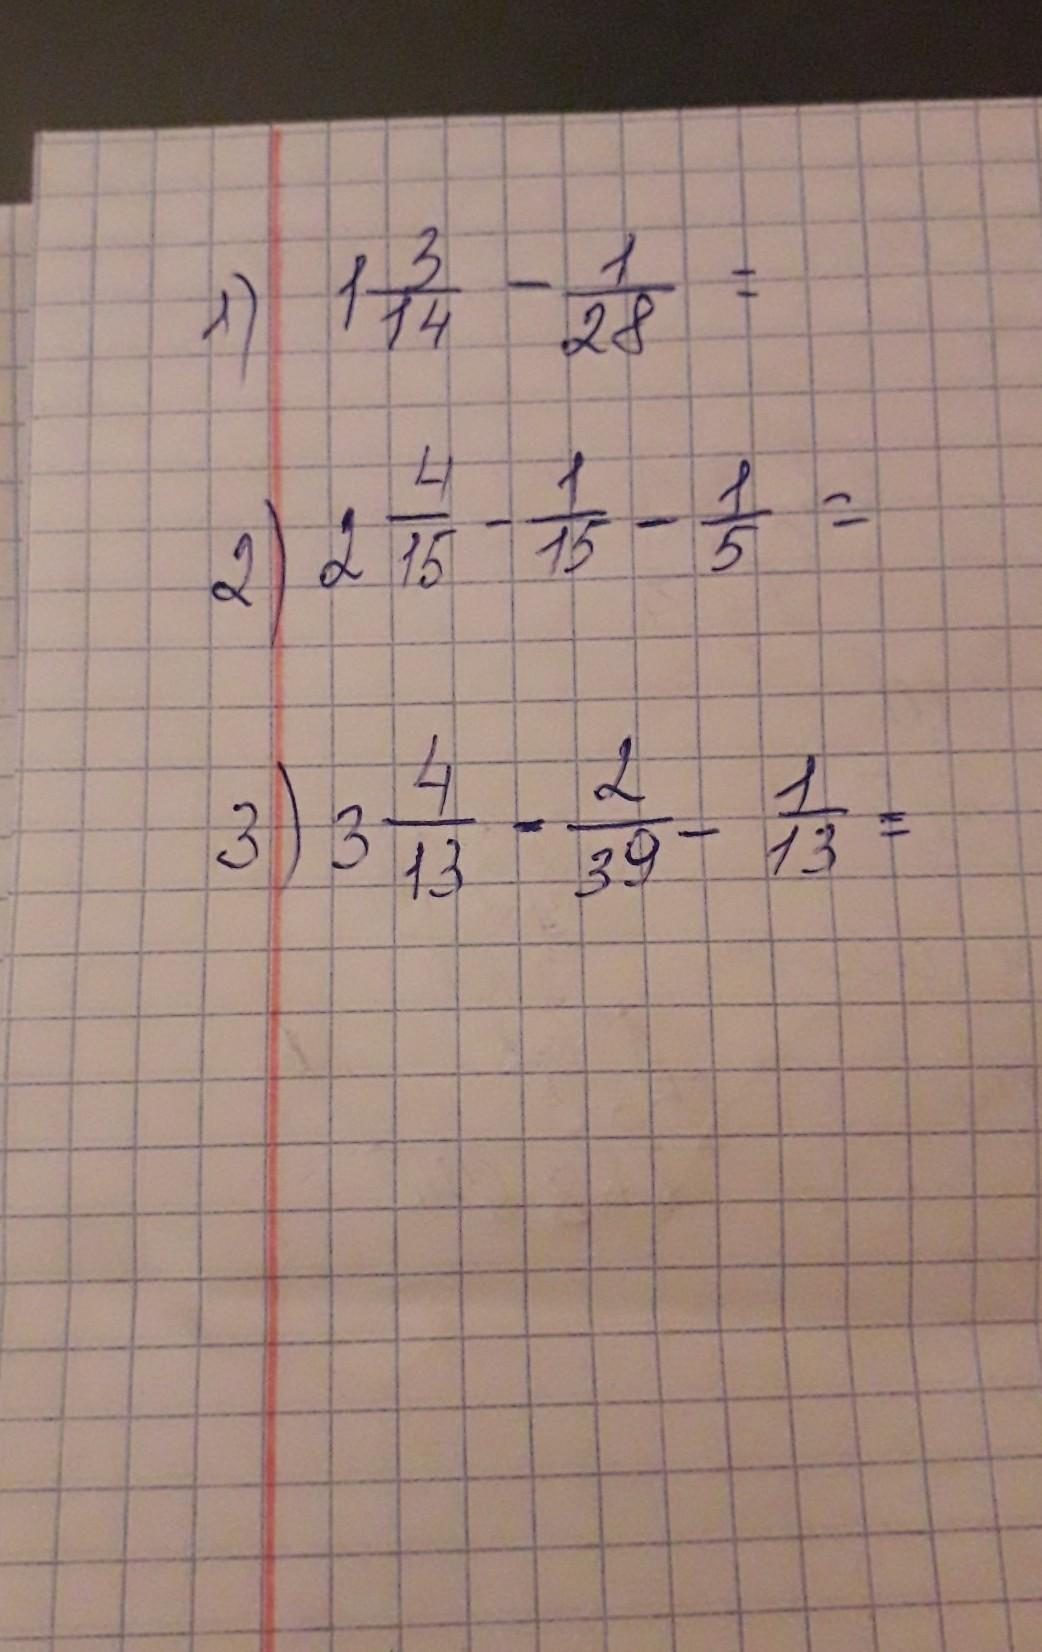 1) 1 3/14 - 1/28 =
2) 2 4/15 - 1/15 - 1/5 =
3) 3 4/13 - 2/39 - 1/13 =